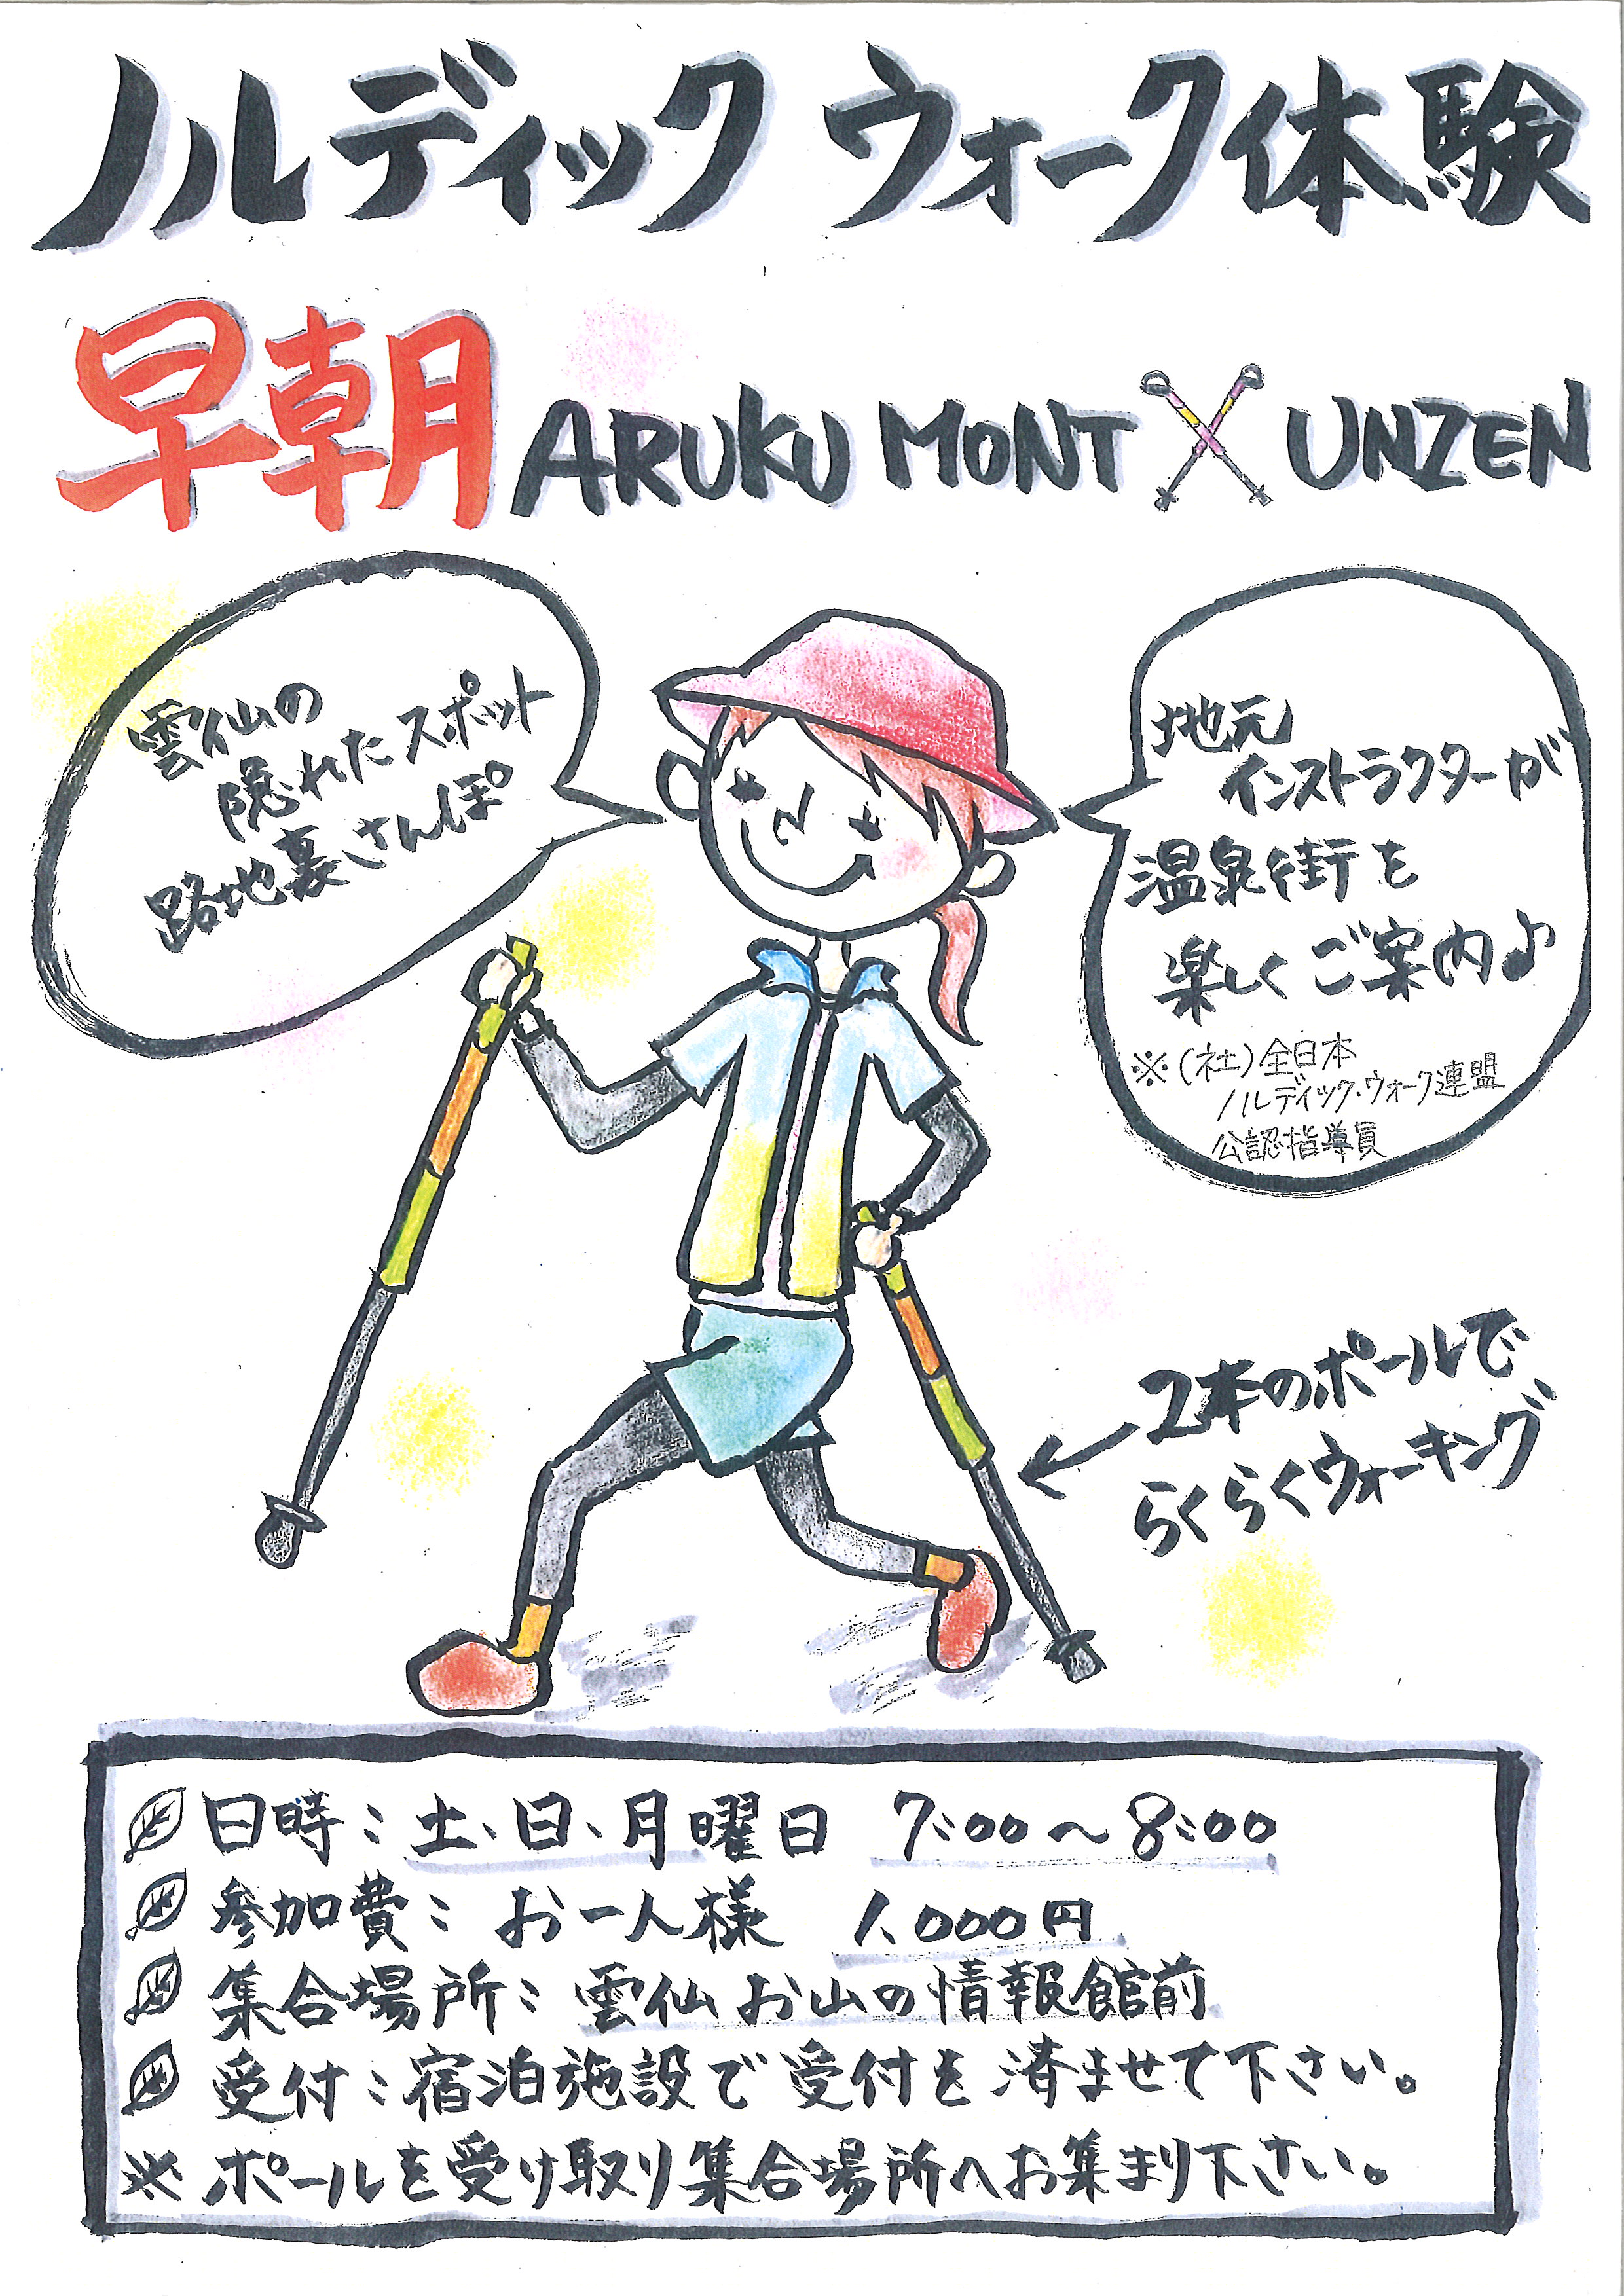 ノルディック ウォーク体験
早朝 ARUKU MONT X UNZEN
雲仙の
隠れたスポット
路地裏さんぽ
地元
インストラクターが
温泉街を
楽しくご案内♪
※(社)全日本
ノルディック・ウォーク連盟
公認指導員
2本のポールで
らくらくウォーキング
日時:土、日、月曜日 7:00〜8:00
参加費:お一人様 1,000円
集合場所:雲仙お山の情報館前
受付:宿泊施設で受付を済ませて下さい。
※ポールを受け取り集合場所へお集まり下さい。